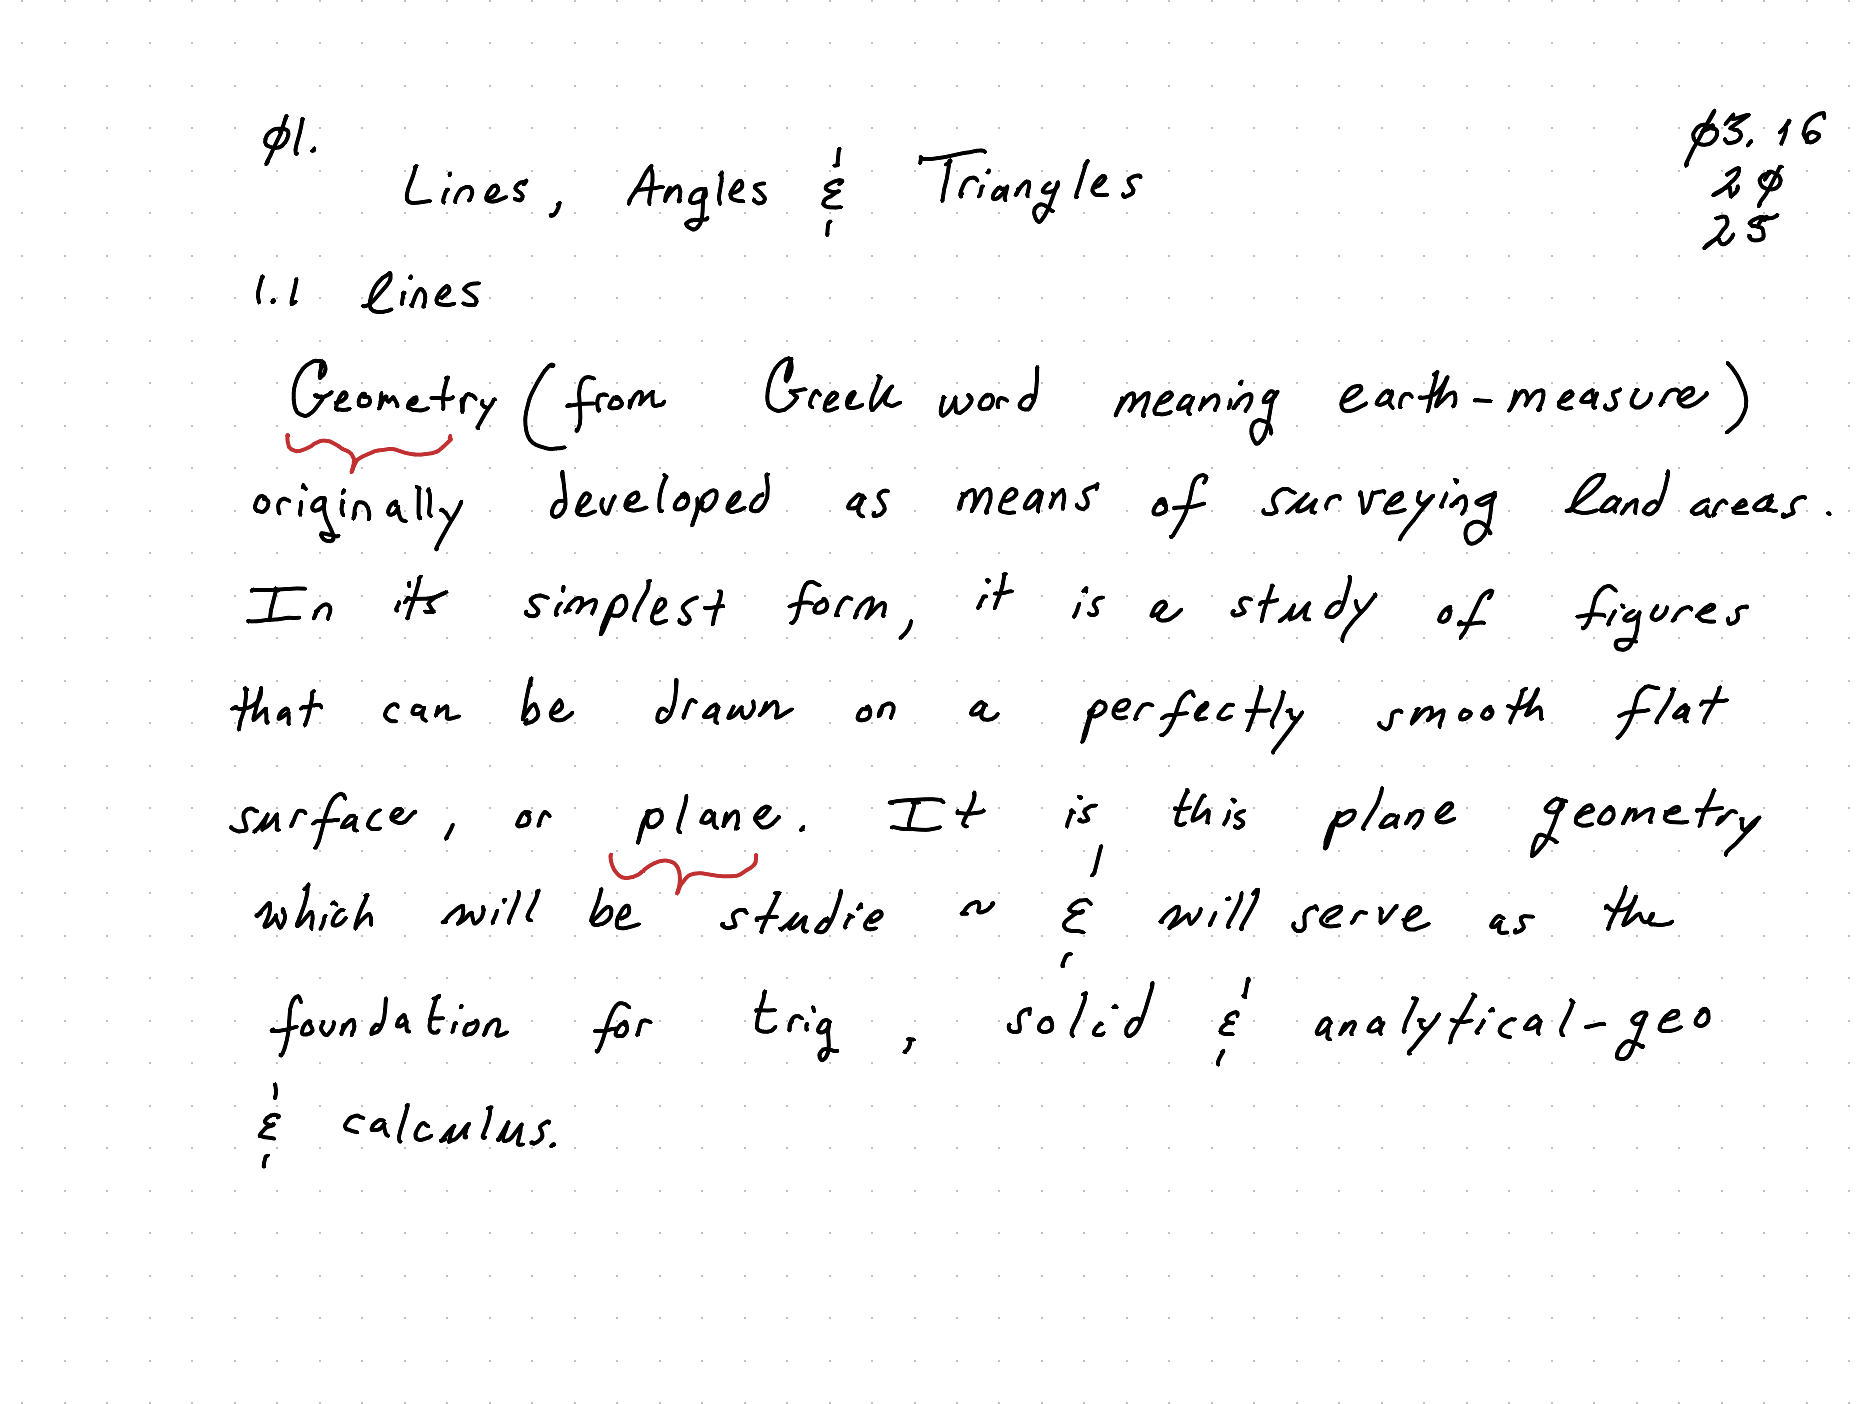 01.
03.16
Lines, Angles & Triangles
20
25
1.1 lines
Geometry (from Greek word meaning earth-measure)
originally developed as means of surveying land areas.
In its simplest form, it is a study of figures
that can be drawn on a perfectly smooth flat
surface, or plane. It is this plane geometry
which will be studie ~ & will serve as the
foundation for trig, solid & analytical-geo
& calculus.